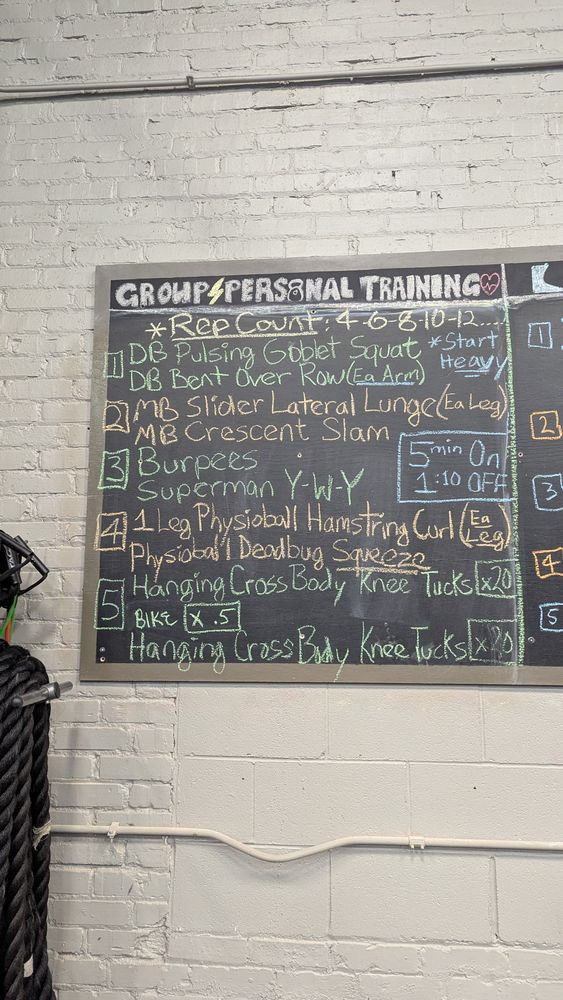 GROUP PERSONAL TRAINING
* Rep Count: 4-6-8-10-12...
* Start Heavy
1 DB Pulsing Goblet Squat
DB Bent Over Row (Ea Arm)
2 MB Slider Lateral Lunge (Ea Leg)
MB Crescent Slam
5 min On
1:10 OFF
3 Burpees
Superman Y-W-Y
4 1 Leg Physioball Hamstring Curl (Ea Leg)
Physioball Deadbug Squeeze
5 Hanging Cross Body Knee Tucks x20
BIKE x .5
Hanging Cross Body Knee Tucks x20
1
2
3
4
5